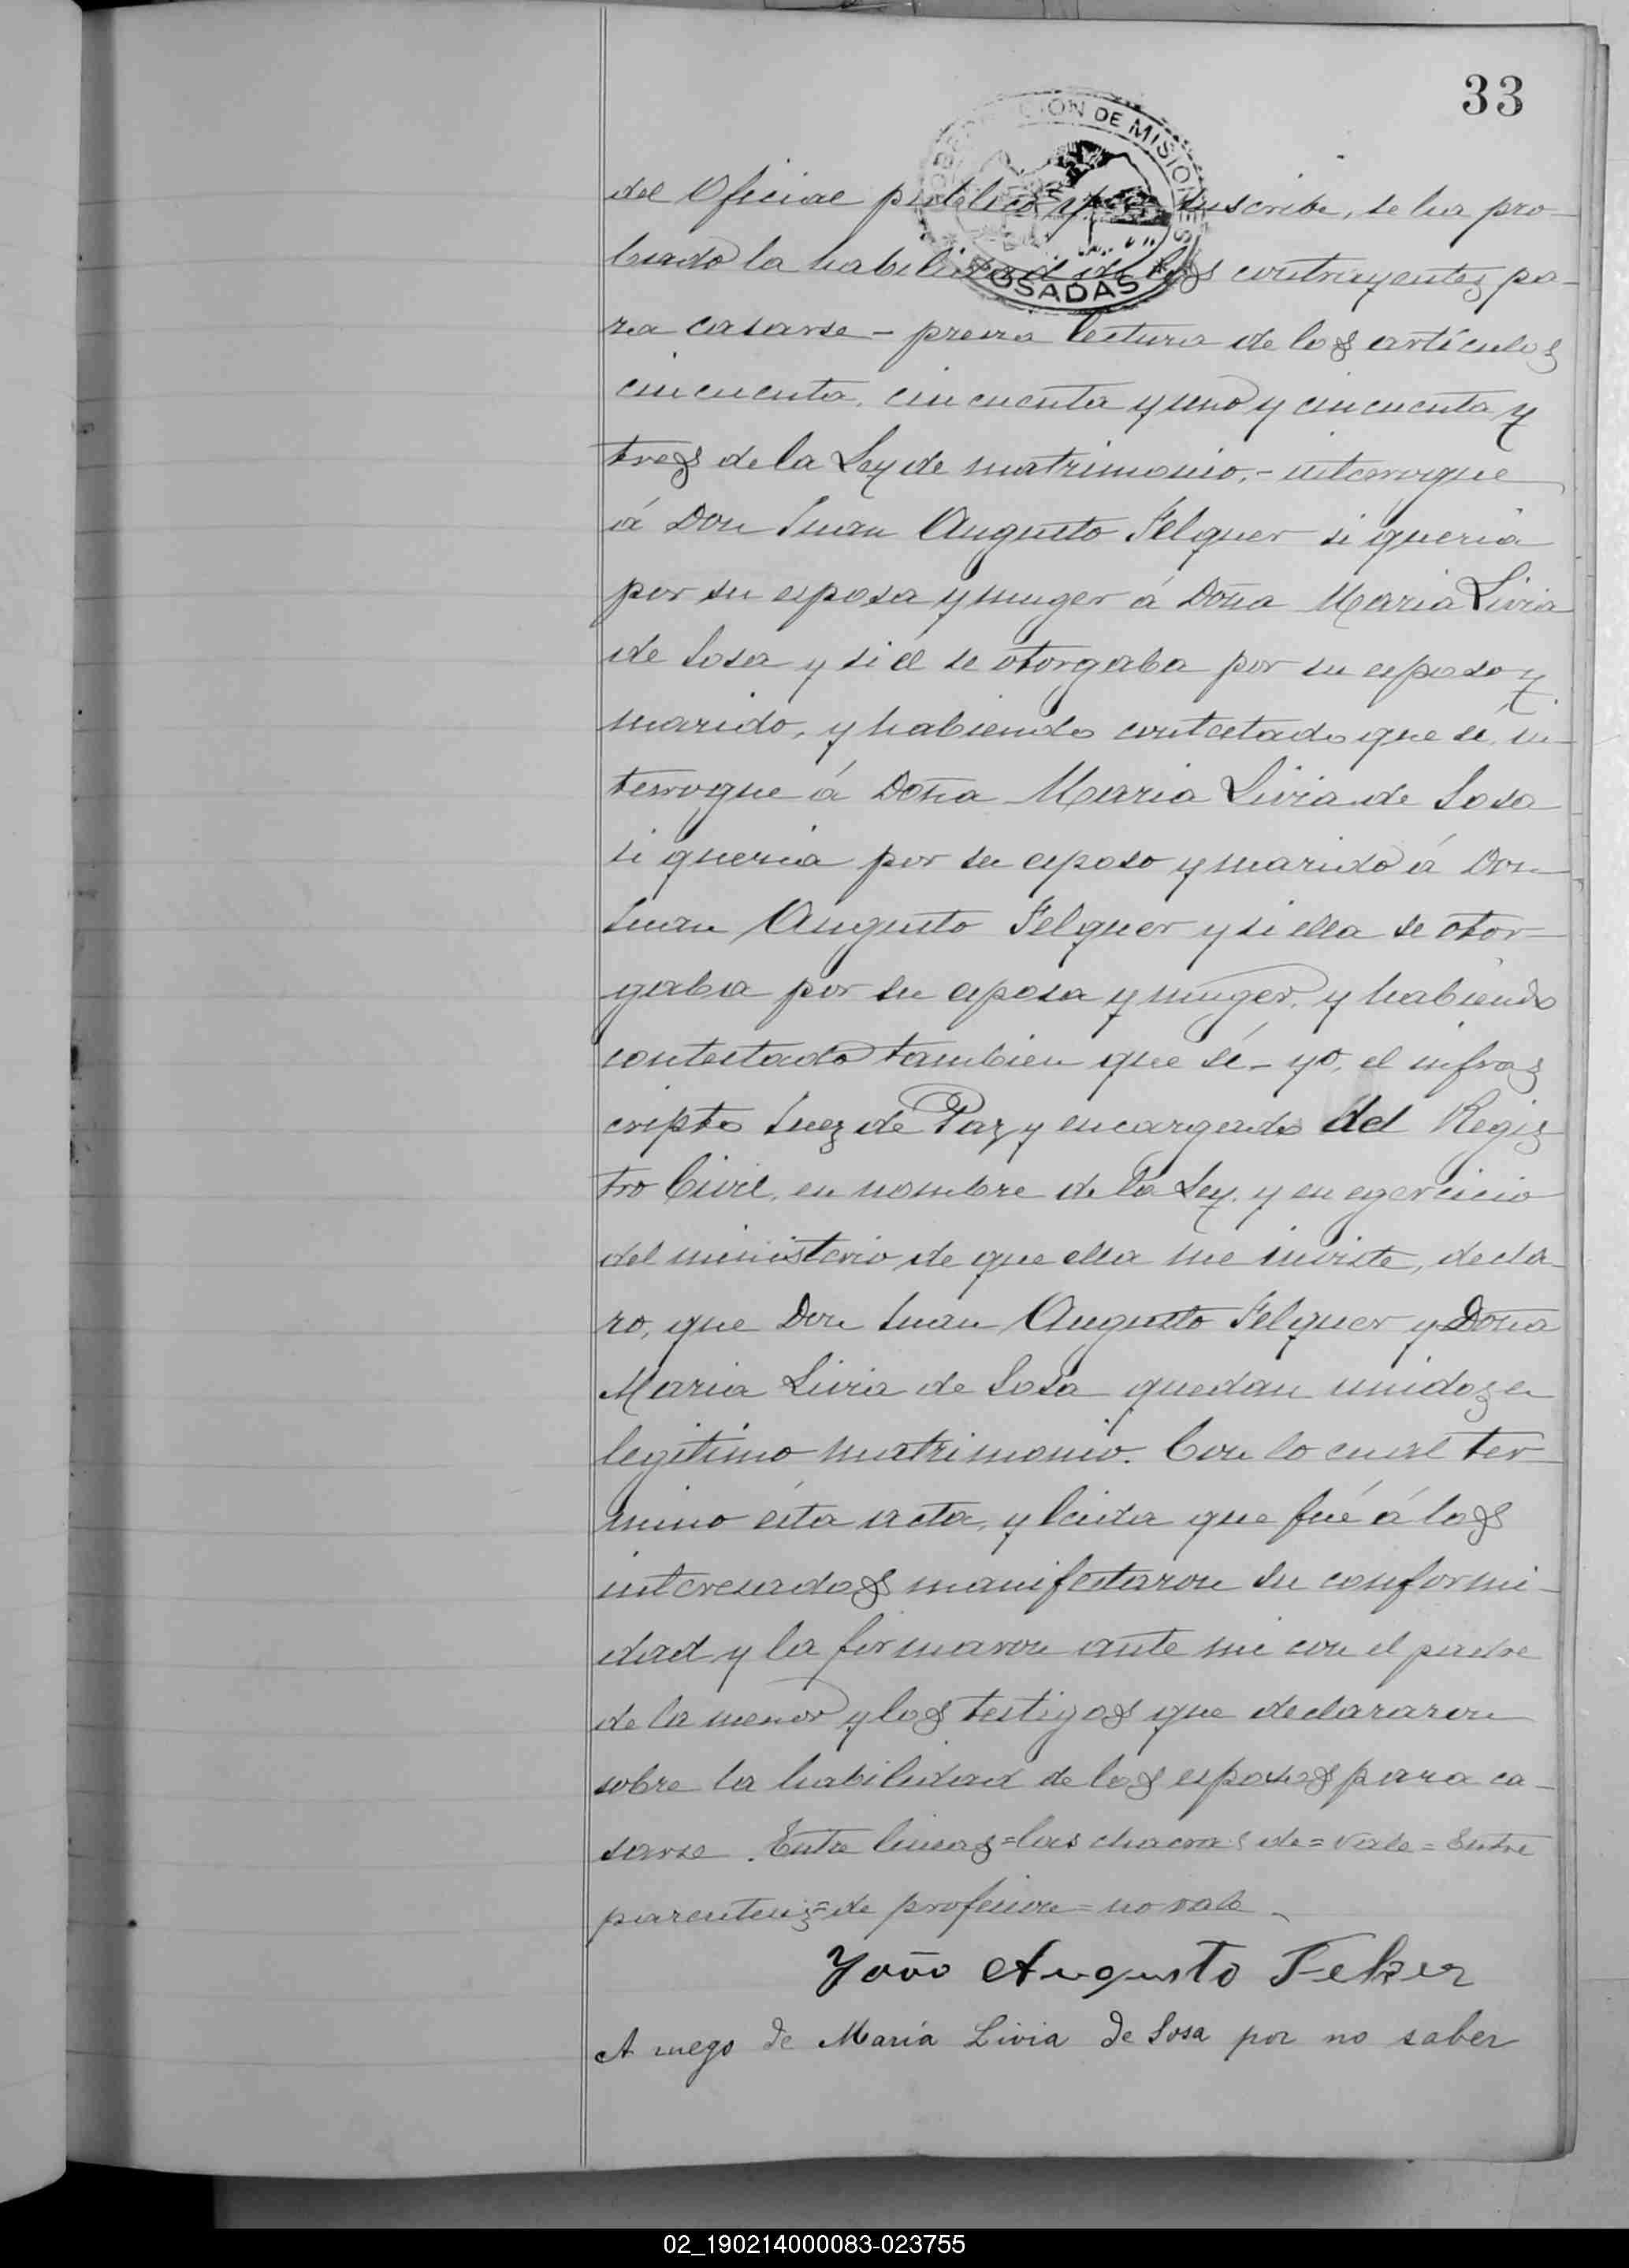 33
GOBERNACION DE MISIONES
POSADAS
del Oficial publico que suscribe, se ha pro-
bado la habilidad de los contrayentes pa-
ra casarse - previa lectura de los artículos
cincuenta, cincuenta y uno y cincuenta y
tres de la Ley de matrimonio, - interrogue
á Don Juan Augusto Felquer si queria
por su esposa y muger á Doña Maria Livia
de Sosa y si el se otorgaba por su esposo y
marido, y habiendo contestado que sí, in-
terrogue á Doña Maria Livia de Sosa
si queria por su esposo y marido á Don
Juan Augusto Felquer y si ella se otor-
gaba por su esposa y muger, y habiendo
contestado tambien que sí - yo, el infras
cripto Juez de Paz y encargado del Regis
tro Civil, en nombre de la Ley, y en egercicio
del ministerio de que ella me inviste, decla-
ro, que Don Juan Augusto Felquer y Doña
Maria Livia de Sosa quedan unidos en
legítimo matrimonio. Con lo cual ter-
mino ésta acta, y leida que fué á los
interesados manifestaron su conformi-
dad y la firmaron ante mi con el padre
de la menor y los testigos que declararon
sobre la habilidad de los esposos para ca-
sarse. Entre lineas = las chacras de = vale = Entre
parentesis = de profesion = no vale -
João Augusto Felker
A ruego de María Livia de Sosa por no saber
02_190214000083-023755